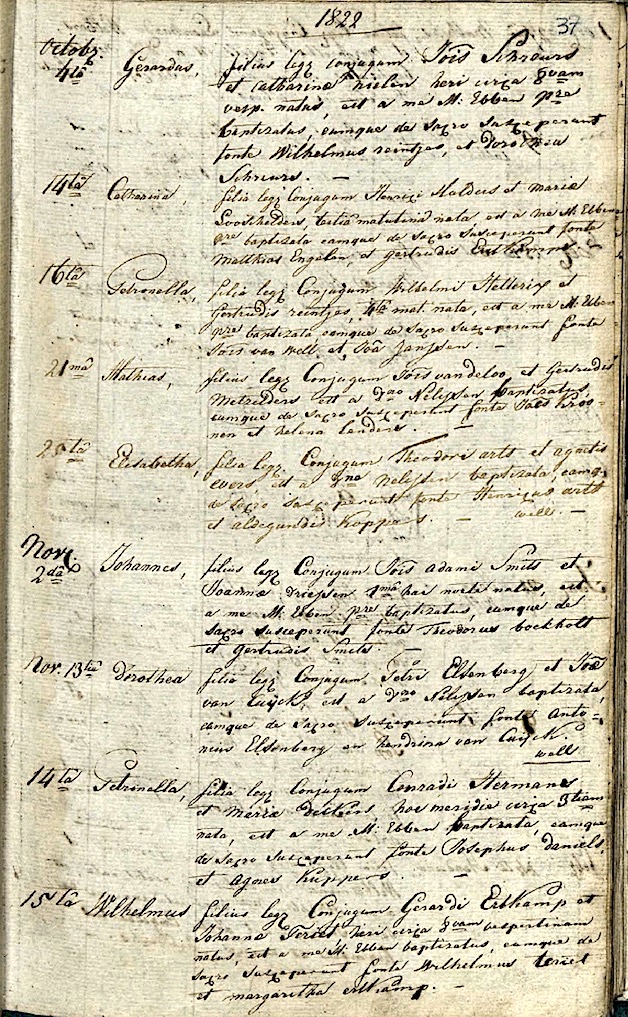 1822
37
Octobr.
4ta Gerardus, filius legz conjugum Jois Schreurs
et Catharinæ Thielen heri circa 8vam
vesp. natus, est a me M. Ebben pre
baptizatus, eumque de sacro susceperunt
fonte Wilhelmus reintjes, et Dorothea
Schreurs. —
14ta Catharina, filia legz Conjugum Henrici Mulders et Mariæ
Looschelders, tertia matutina nata est a me M. Ebben
pre baptizata eamque de sacro susceperunt fonte
Matthias Engelen, et Gertrudis Ertkamps
16ta Petronella, filia legz Conjugum Wilhelmi Hellerix et
Gertrudis reintjes, 4ta mat. nata, est a me M. Ebben
pre baptizata eamque de sacro susceperunt fonte
Jois van Well et Joa Janssen —
21ma Mathias, filius legz Conjugum Jois van de loo, et Gertrudis
est a dno Nelissen baptizatus,
eumque de sacro susceperunt fonte Joës Kroo-
nen et helena lenders. —
Elisabetha, filia legz Conjugum Theodori arts et agnetis
evers, est a dno Nelissen baptizata, eamq.
de sacro susceperunt fonte Henricus arts
et aldegundis Koppers. — well. —
Nov.
2da Johannes, filius legz Conjugum Jois adami Smits et
Joannæ driessen 1ma hac nocte natus, est
a me M. Ebben pre baptizatus, eumque de
sacro susceperunt fonte Theodorus bockholt
et Gertrudis Smits —
Nov. 13tia Dorothea filia legz Conjugum Petri Elsenberg et Joæ
van Cuijck, est a dno Nelissen baptizata,
eamque de sacro susceperunt fonte Anto-
nius Elsenberg en hendrina van Cuijck.
well
14ta Petronella, filia legz Conjugum Conradi Hermans
et Mariæ dickers hoc meridie circa 3tiam
nata, est a me M. Ebben baptizata, eamque
de sacro susceperunt fonte Josephus daniels,
et Agnes Küppers. —
15ta Wilhelmus filius legz Conjugum Gerardi Ertkamp et
Johanna Teriet heri circa 8vam vespertinam
natus, est a me M. Ebben baptizatus, eumque de
sacro susceperunt fonte Wilhelmus teriet
et margaretha ertkamp. —